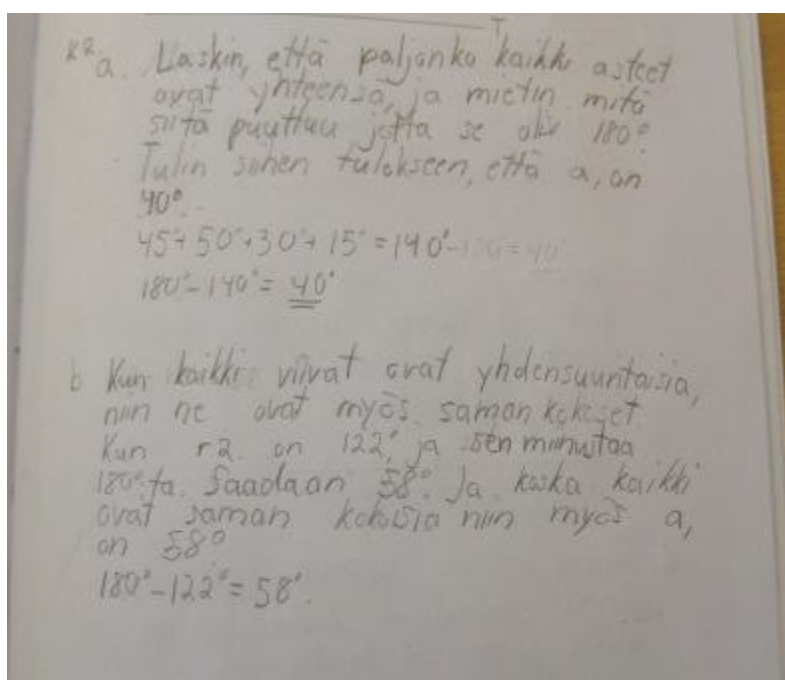 K2 a. Laskin, että paljonko kaikki asteet
ovat yhteensä, ja mietin mitä
siitä puuttuu jotta se olis 180°.
Tulin siihen tulokseen, että a, on
40°.
45°+50°+30°+15°=140°-180=40°
180°-140°=40°
b Kun kaikki viivat ovat yhdensuuntaisia,
niin ne ovat myös saman kokoiset
Kun r2 on 122°, ja sen miinustaa
180°:ta. Saadaan 58°. Ja koska kaikki
ovat saman kokoisia niin myös a,
on 58°
180°-122°=58°.